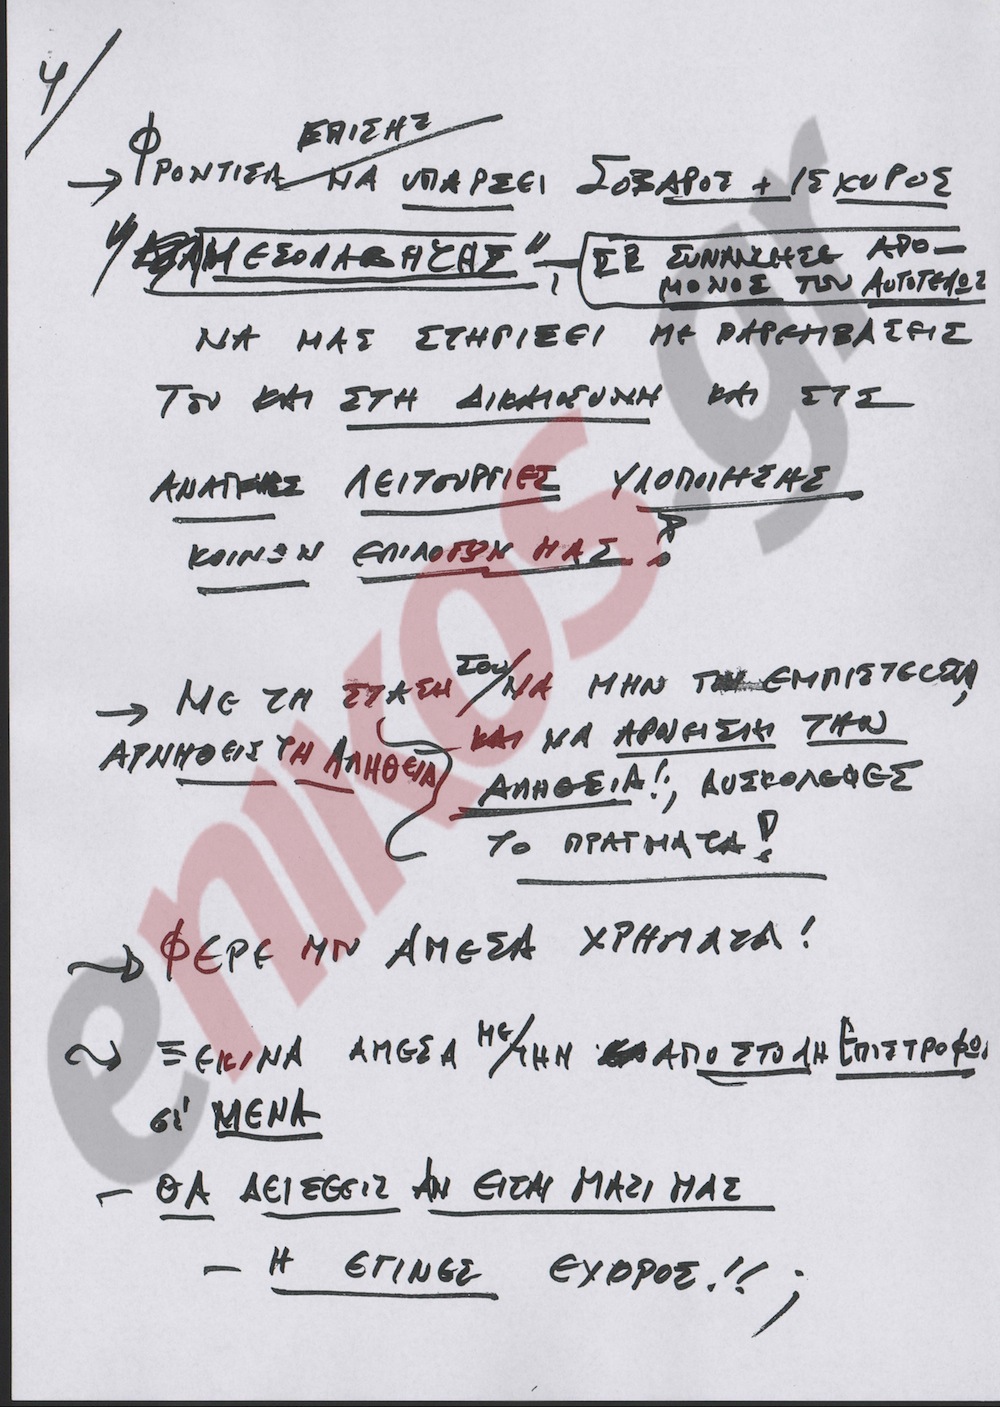 4/
ΕΠΙΣΗΣ
→ ΦΡΟΝΤΙΣΑ ΝΑ ΥΠΑΡΞΕΙ ΣΟΒΑΡΟΣ + ΙΣΧΥΡΟΣ
"ΜΕΣΟΛΑΒΗΤΗΣ"
ΣΕ ΣΥΝΑΝΤΗΣΕ ΑΠΟ-
ΜΟΝΟΣ ΤΟΥ ΑΥΤΟΤΕΛΩΣ
ΝΑ ΜΑΣ ΣΤΗΡΙΞΕΙ ΜΕ ΠΑΡΕΜΒΑΣΕΙΣ
ΤΟΥ ΚΑΙ ΣΤΗ ΔΙΚΑΙΟΣΥΝΗ ΚΑΙ ΣΤΣ
ΑΝΑΓΚΕΣ ΛΕΙΤΟΥΡΓΙΕΣ ΥΛΟΠΟΙΗΣΗΣ
ΚΟΙΝΩΝ ΕΠΙΛΟΓΩΝ ΜΑΣ!
→ ΜΕ ΤΗ ΣΤΑΣΗ ΣΟΥ/ΝΑ ΜΗΝ ΕΜΠΙΣΤΕΣΑΙ,
ΑΡΝΗΘΕΙΣ ΤΗ ΑΛΗΘΕΙΑ
ΚΑΙ ΝΑ ΑΡΝΕΙΣΑΙ ΤΗΝ
ΑΛΗΘΕΙΑ!, ΔΥΣΚΟΛΕΨΕΣ
ΤΟ ΠΡΑΓΜΑΤΑ!
→ ΦΕΡΕ ΜΝ ΑΜΕΣΑ ΧΡΗΜΑΤΑ!
ΞΕΚΙΝΑ ΑΜΕΣΑ ΜΕ/ΤΗΝ ΑΠΟΣΤΟΛΗ ΕΠΙΣΤΡΟΦΩΝ
σι' ΜΕΝΑ
- ΘΑ ΔΕΙΞΕΙΣ ΑΝ ΕΙΣΑΙ ΜΑΖΙ ΜΑΣ
- Η ΕΓΙΝΕΣ ΕΧΘΡΟΣ.!! ;
enikos.gr